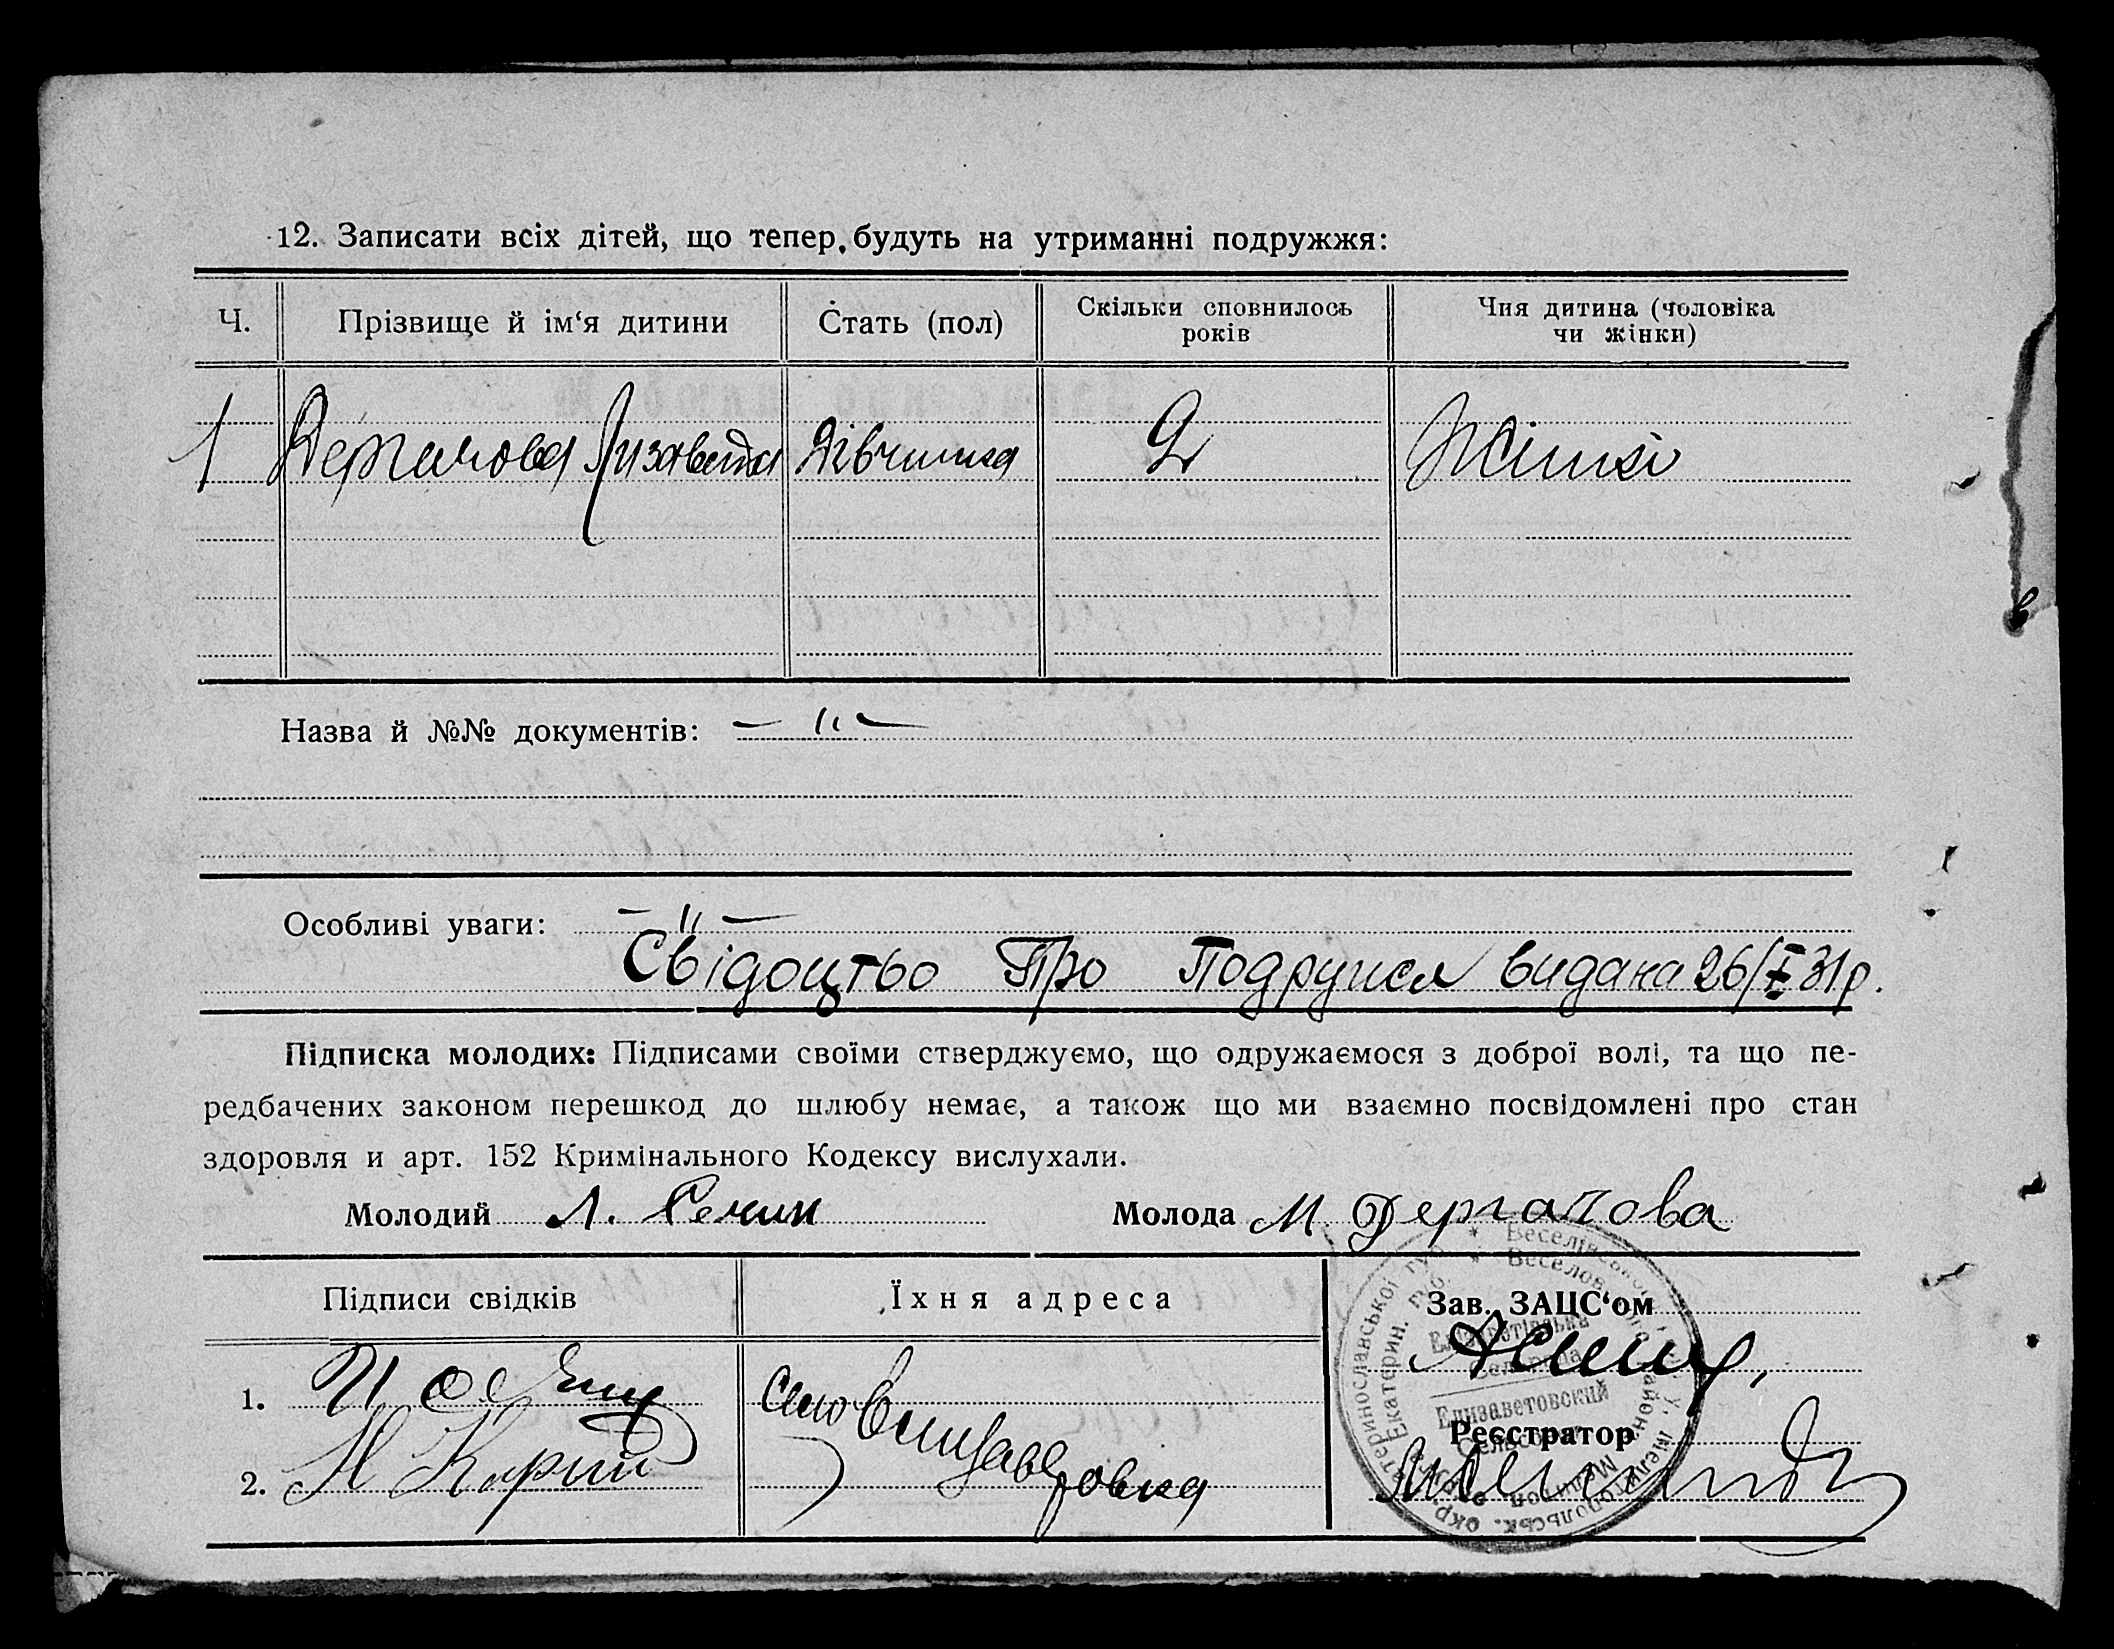 12. Записати всіх дітей, що тепер, будуть на утриманні подружжя:
Ч. Прізвище й ім‘я дитини Стать (пол) Скільки сповнилось років Чия дитина (чоловіка чи жінки)
1 Дергачова Лизавета Дівчинка 2 Жінки
Назва й №№ документів: — " —
Особливі уваги: — " —
Свідоцтво Про Подружся видана 26/I 31 р.
Підписка молодих: Підписами своїми стверджуємо, що одружаємося з доброї волі, та що пе-
редбачених законом перешкод до шлюбу немає, а також що ми взаємно посвідомлені про стан
здоровля и арт. 152 Кримінального Кодексу вислухали.
Молодий Л. Молода М. Дергачова
Підписи свідків Їхня адреса Зав. ЗАЦС‘ом
1. село Єлизаве
2. Н товка
Реєстратор
Веселівськ
Веселов
Катеринославської губ.
Екатерин. губ.
Мелітопольськ. окр.
Елізаветівська
Сельрада
Елизаветовский
Сельсовет